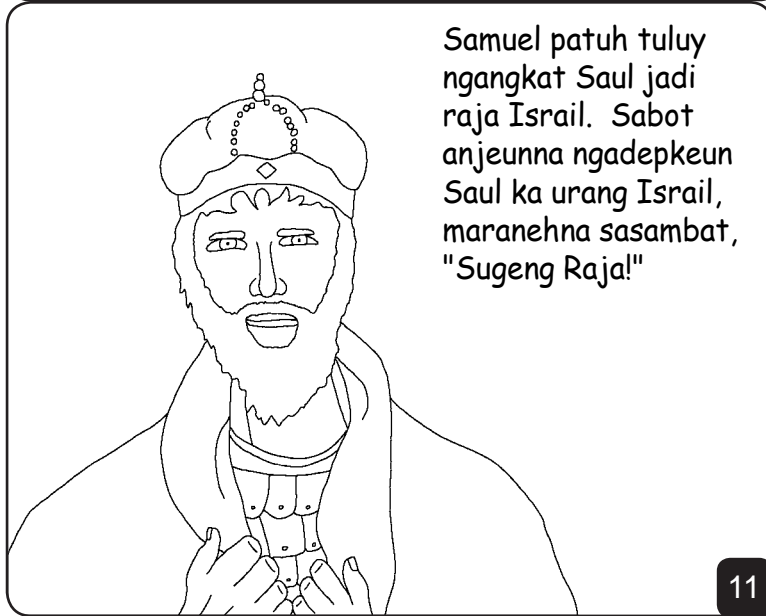 Samuel patuh tuluy
ngangkat Saul jadi
raja Israil.  Sabot
anjeunna ngadepkeun
Saul ka urang Israil,
maranehna sasambat,
"Sugeng Raja!"
11